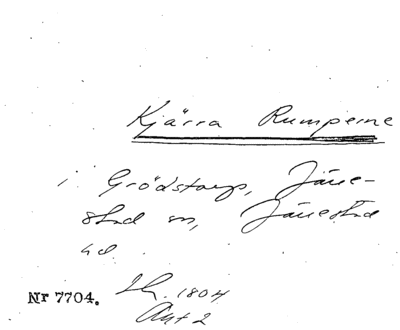 Kjärra Rumperne
i Grödstorp, Jäne-
stad sn, Jänestad
hd.
Nr 7704. Lh. 1804
Akt 2